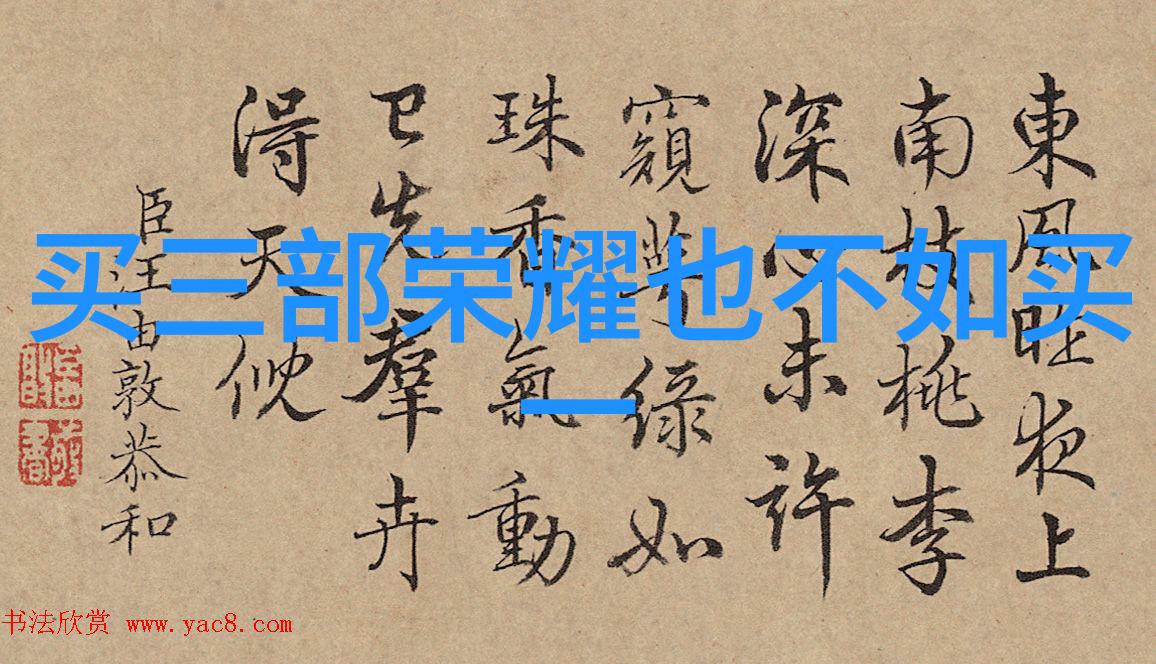 買三部荣耀也不如买
一
東風昨夜上
南枝桃李
深心未許
窺綠如
珠香氣動
已先羣卉
得天倪
臣汪由敦恭和
书法欣赏 www.yac8.com